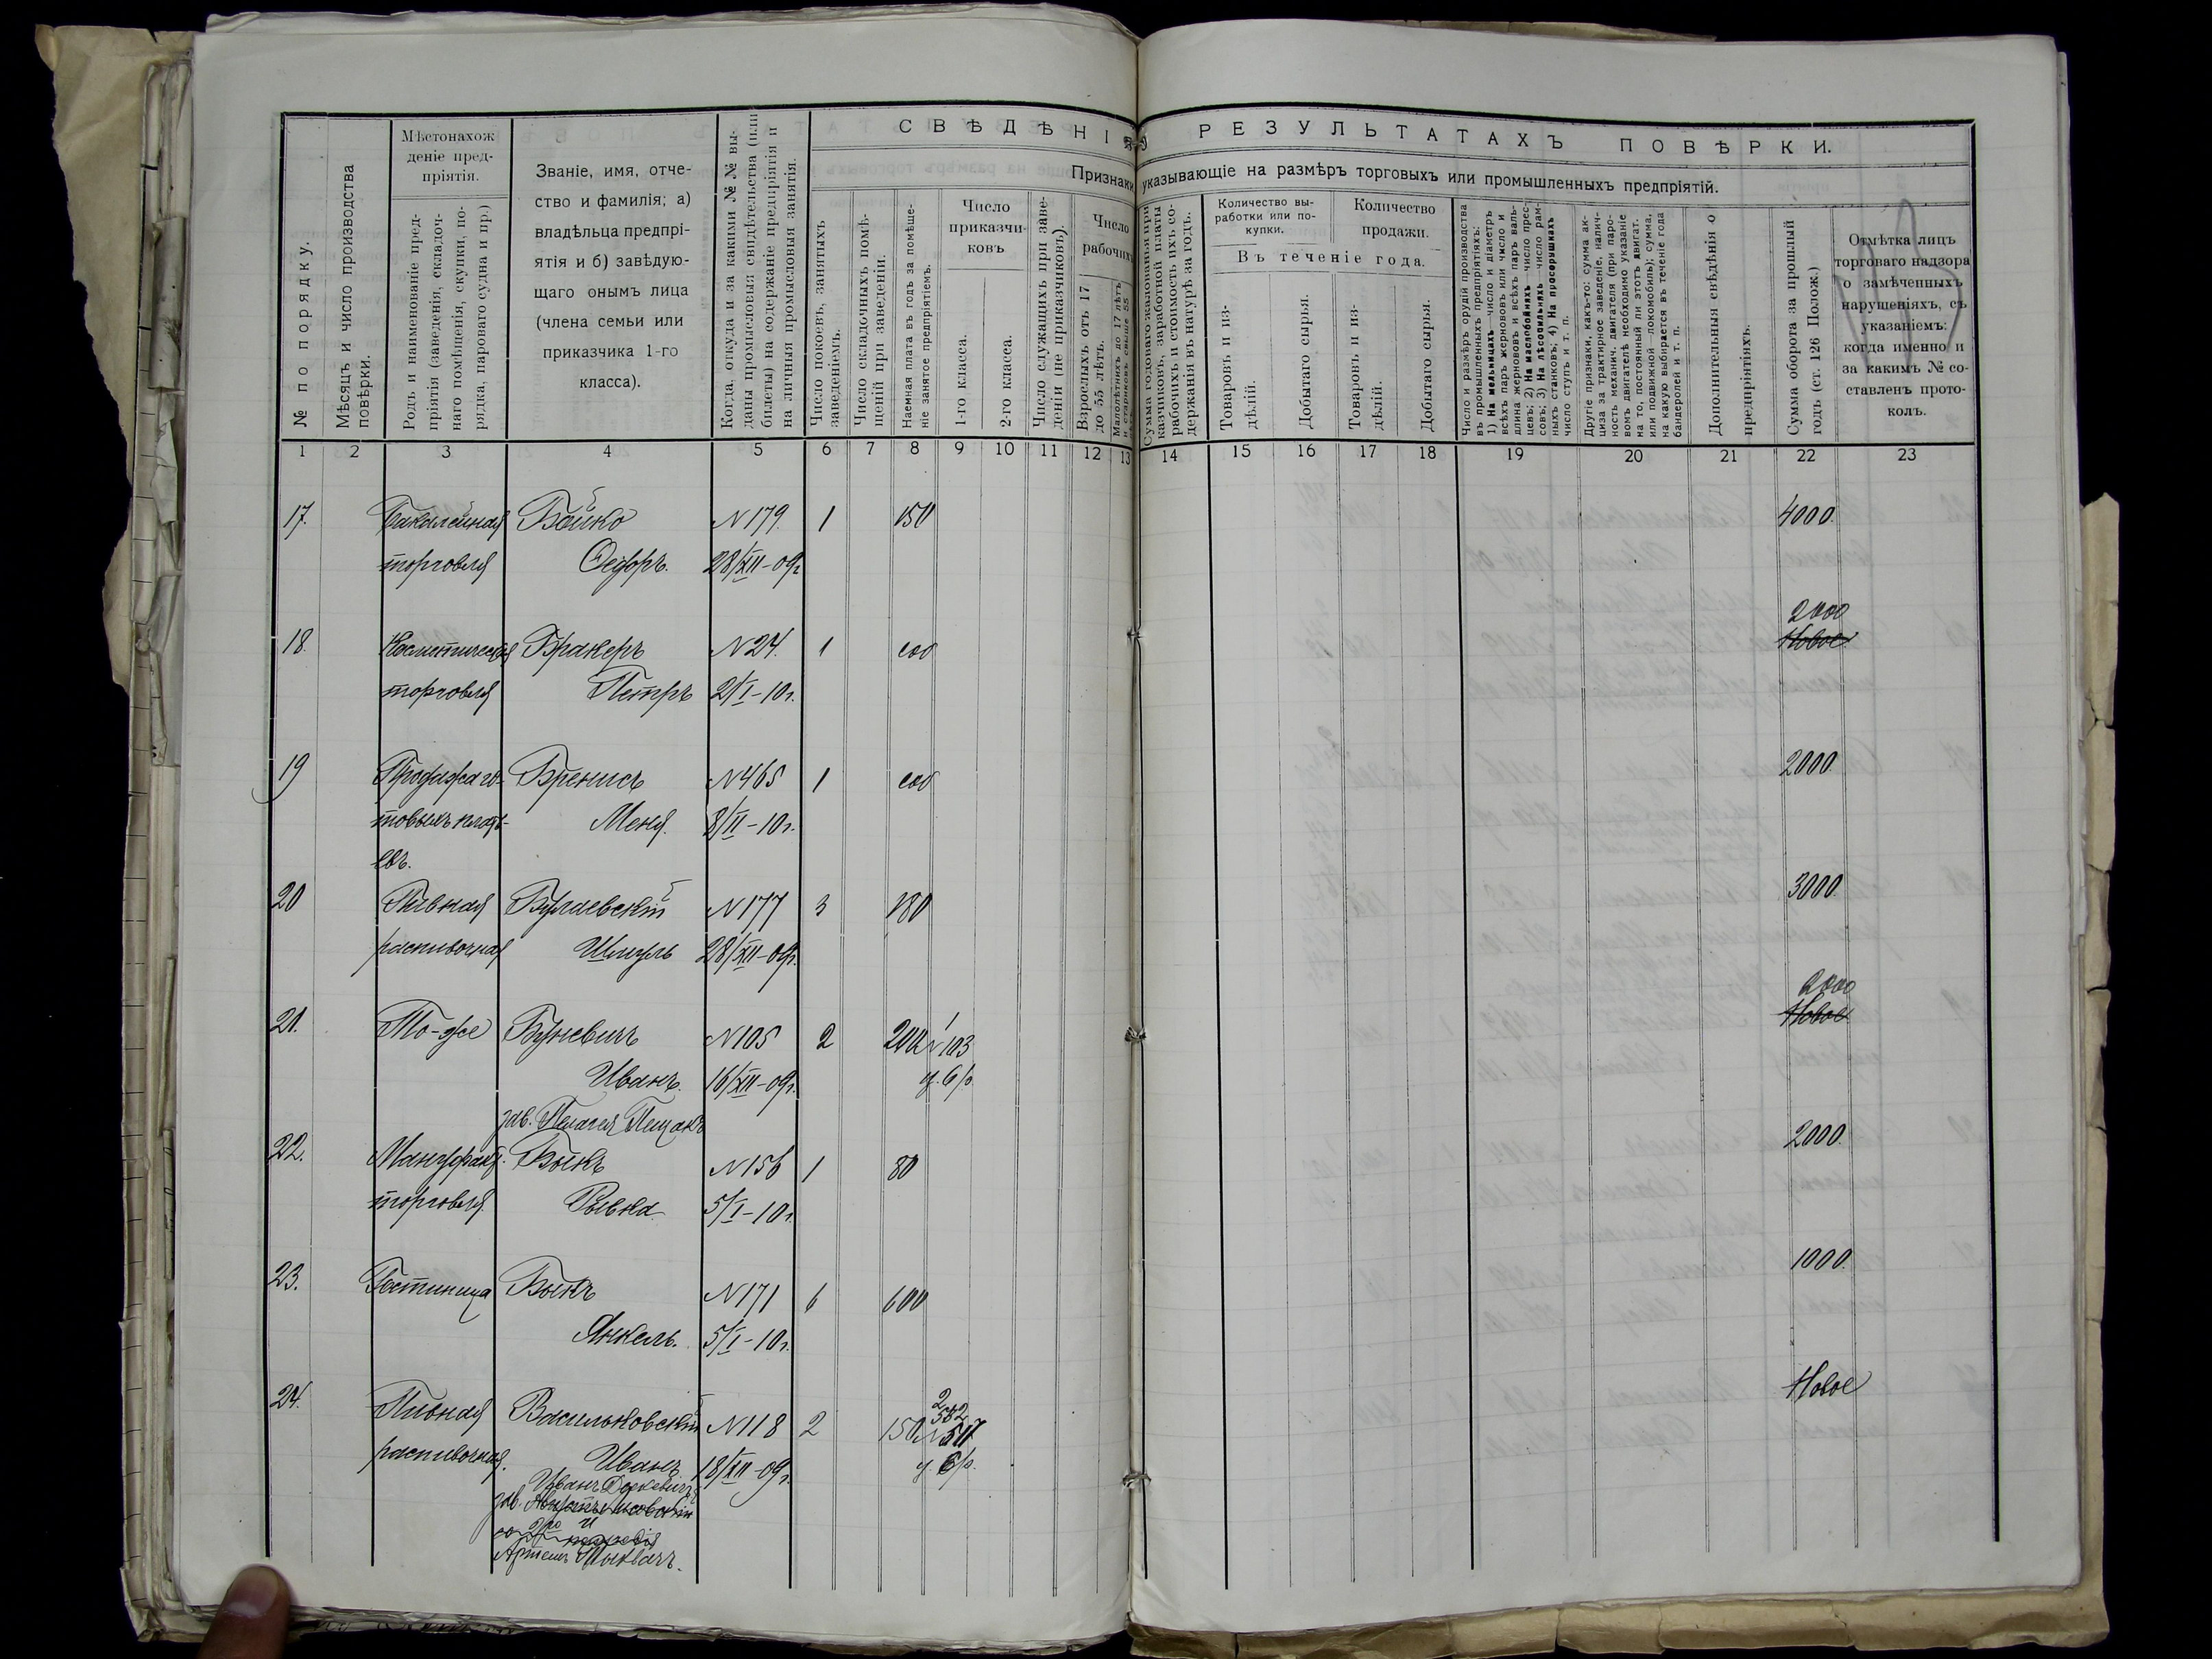 СВѢДѢНІЯ О РЕЗУЛЬТАТАХЪ ПОВѢРКИ.
Признаки, указывающіе на размѣръ торговыхъ или промышленныхъ предпріятій.
№ по порядку.
Мѣсяцъ и число производства
повѣрки.
Мѣстонахож
деніе пред-
пріятія.
Родъ и наименованіе пред-
пріятія (заведенія, складоч-
наго помѣщенія, скупки, по-
рядка, парового судна и пр.)
Званіе, имя, отче-
ство и фамилія; а)
владѣльца предпрі-
ятія и б) завѣдую-
щаго онымъ лица
(члена семьи или
приказчика 1-го
класса).
Когда, откуда и за какими №№ вы-
даны промысловыя свидѣтельства (или
билеты) на содержаніе предпріятія и
на личныя промысловыя занятія.
Число покоевъ, занятыхъ
заведеніемъ.
Число складочныхъ помѣ-
щеній при заведеніи.
Наемная плата въ годъ за помѣще-
ніе занятое предпріятіемъ.
Число
приказчи-
ковъ
1-го класса.
2-го класса.
Число служащихъ при заве-
деніи (не приказчиковъ).
Число
рабочихъ
Взрослыхъ отъ 17
до 55 лѣтъ.
Малолѣтнихъ до 17 лѣтъ
и стариковъ свыше 55
Сумма годового жалованья при
казчиковъ, заработной платы
рабочихъ и стоимость ихъ со-
держанія въ натурѣ за годъ.
Количество вы-
работки или по-
купки.
Количество
продажи.
Въ теченіе года.
Товаровъ и из-
дѣлій.
Добытаго сырья.
Товаровъ и из-
дѣлій.
Добытаго сырья.
Число и размѣръ орудій производства
въ промышленныхъ предпріятіяхъ:
1) На мельницахъ—число и діаметръ
всѣхъ паръ жернововъ или число и
длина жернововъ и всѣхъ паръ валь-
цевъ; 2) На маслобойняхъ—число прес-
совъ; 3) На лѣсопильняхъ—число рам-
ныхъ станковъ; 4) На просорушняхъ
число ступъ и т. п.
Другіе признаки, какъ-то: сумма ак-
циза за трактирное заведеніе, налич-
ность механич. двигателя (при паро-
вомъ двигателѣ необходимо указаніе
на то, постоянный ли этотъ двигат.
или подвижной локомобиль); сумма,
на какую выбирается въ теченіе года
бандеролей и т. п.
Дополнительныя свѣдѣнія о
предпріятіяхъ.
Сумма оборота за прошлый
годъ (ст. 126 Полож.)
Отмѣтка лицъ
торговаго надзора
о замѣченныхъ
нарушеніяхъ, съ
указаніемъ:
когда именно и
за какимъ № со-
ставленъ прото-
колъ.
1 2 3 4 5 6 7 8 9 10 11 12 13 14 15 16 17 18 19 20 21 22 23
17. Бакалейная Бойко N179. 1 150 4000.
торговля Ѳедоръ. 28/XII-09г
2000
18. Косметическая Бракеръ N24. 1 соб Новое
торговля Петръ 21/I-10г.
19 Продажа го- Бренисъ N465 1 соб 2000.
товыхъ платъ- Меня. 8/II-10г.
евъ.
20 Пивная Булаевскій N177 3 180 3000.
распивочная Шмуль 28/XII-09г.
2000
21. То-же Буневичъ N105 2 200 1 N103 Новое
Иванъ. 16/XII-09г. ц. 6р.
зав. Пелагея
22. Мануфакт. Быкъ N156 1 80 2000.
торговля. Рывка 5/I-10г.
23. Гостиница Быкъ N171 6 600 1000.
Янкель. 5/I-10г.
24. Пивная Васильковскій N118 2 150 2 582 N517 Новое
распивочная. Иванъ 18/XII-09г. ц. 6р.
Иванъ
зав.
Артемъ